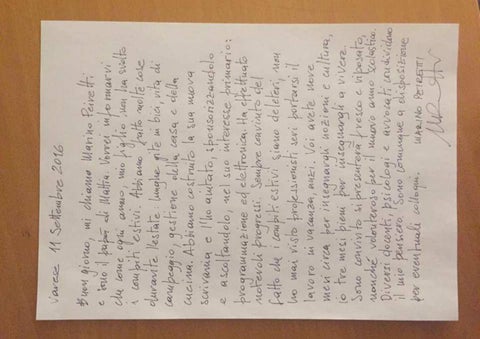 11 Settembre 2016
Buongiorno, mi chiamo Marino Peiretti
e sono il papà di Mattia. Vorrei informarvi
che come ogni anno, mio figlio non ha svolto
i compiti estivi. Abbiamo fatto molte cose
durante l'estate: lunghe gite in bici, vita di
campeggio, gestione della casa e della
cucina. Abbiamo costruito la sua nuova
scrivania e l'ho aiutato, sponsorizzandolo
e ascoltandolo, nel suo interesse primario:
programmazione ed elettronica. Ha effettuato
notevoli progressi. Sempre convinto del
fatto che i compiti estivi siano deleteri, non
ho mai visto professionisti seri portarsi il
lavoro in vacanza, anzi. Voi avete nove
mesi circa per insegnargli nozioni e cultura,
io tre mesi per insegnargli a vivere.
Sono convinto si presenterà fresco e riposato,
nonché volenteroso per il nuovo anno scolastico.
Diversi docenti, psicologi e avvocati condividono
il mio pensiero. Sono comunque a disposizione
per eventuali colloqui. MARINO PEIRETTI